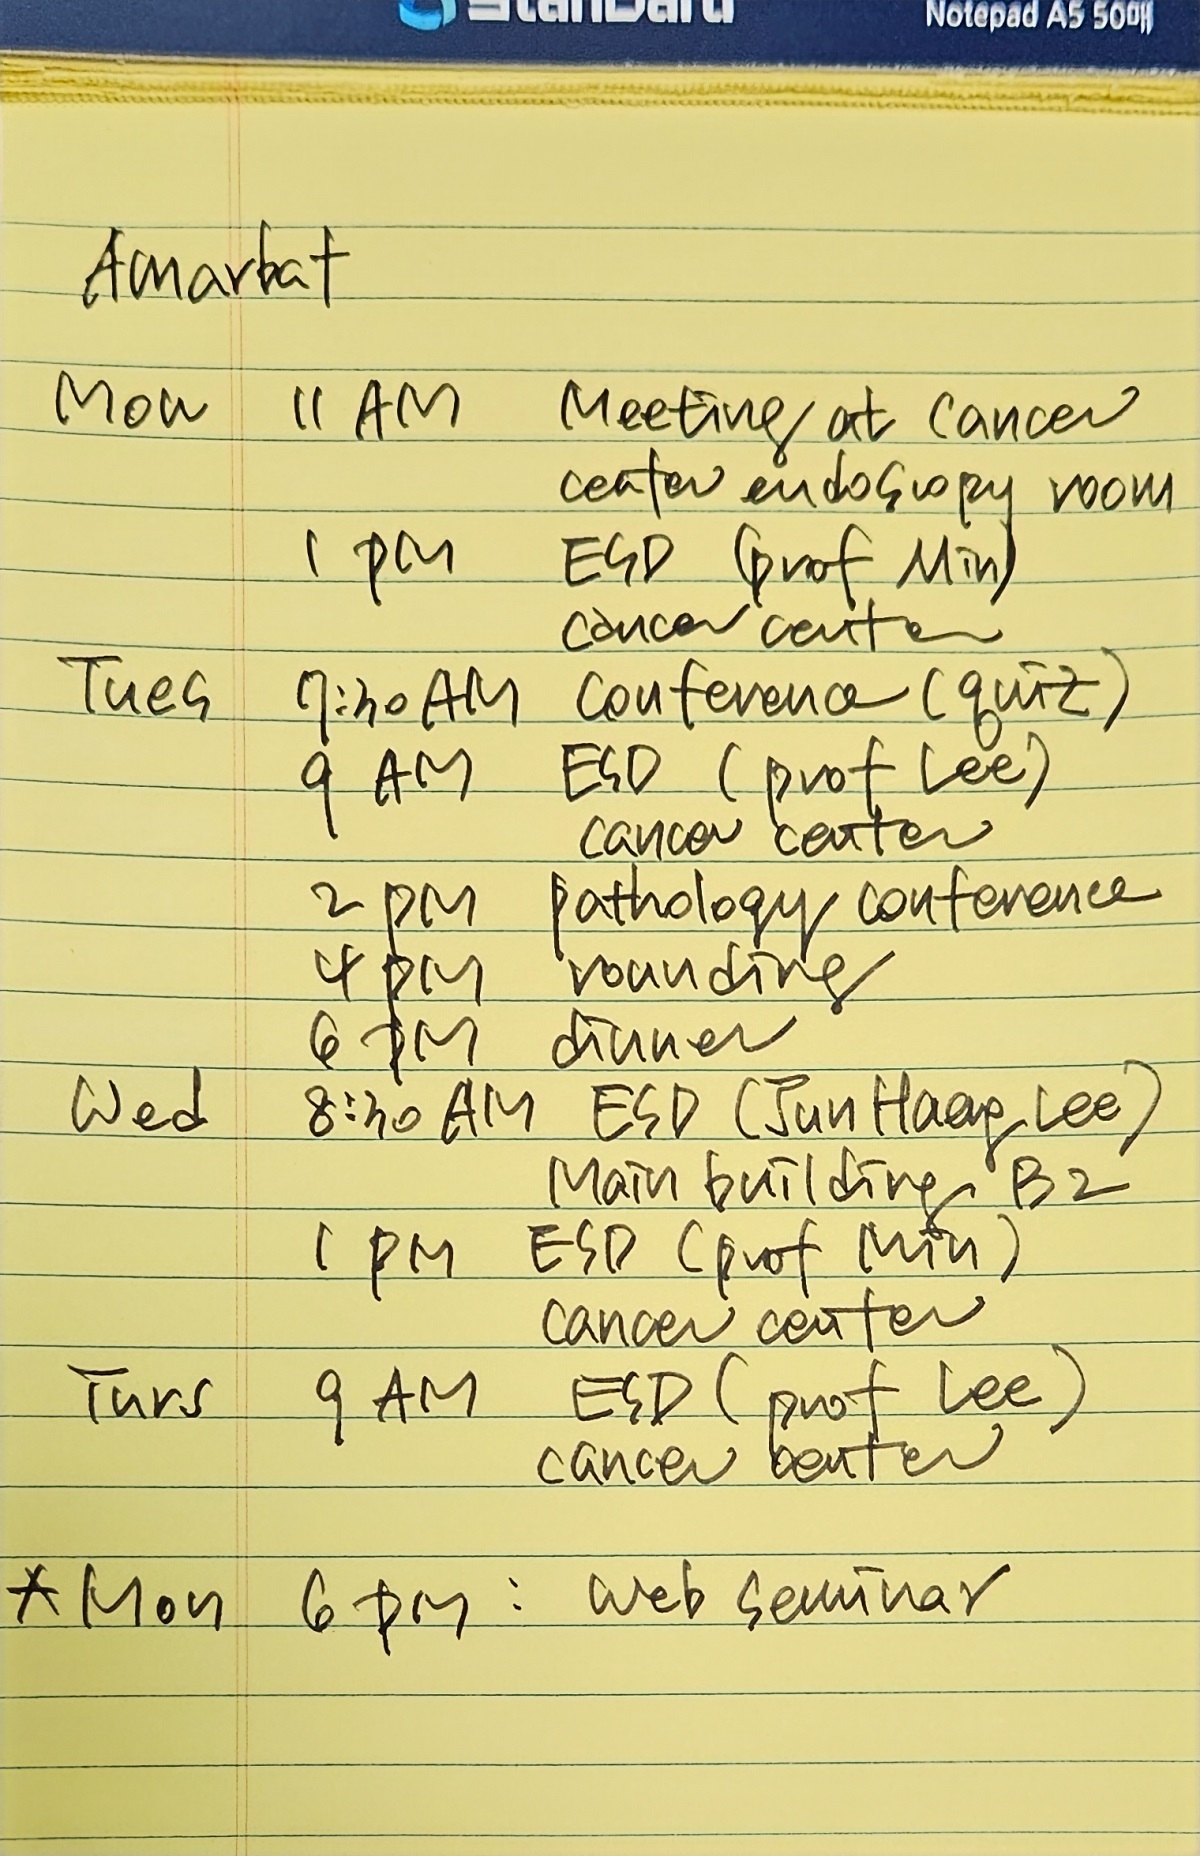 Standard
Notepad A5 50매
Amarbat
Mon 11 AM Meeting at cancer
center endoscopy room
1 PM ESD (prof Min)
cancer center
Tues 7:30 AM Conference (quiz)
9 AM ESD (prof Lee)
cancer center
2 PM pathology conference
4 PM rounding
6 PM dinner
Wed 8:30 AM ESD (Jun Haeng Lee)
Main building B2
1 PM ESD (prof Min)
cancer center
Turs 9 AM ESD (prof Lee)
cancer center
*Mon 6 PM : Web seminar